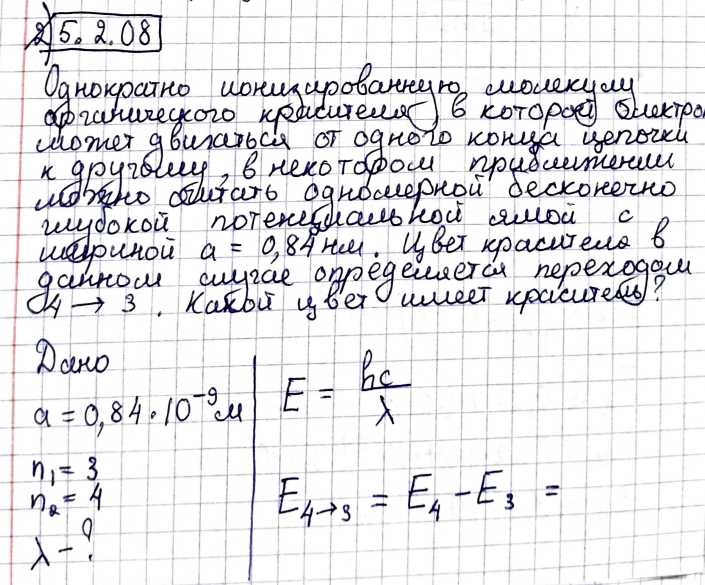 2) 5.2.08
Однократно ионизированную молекулу
органического красителя, в которой электрон
может двигаться от одного конца цепочки
к другому, в некотором приближении
можно считать одномерной бесконечно
глубокой потенциальной ямой с
шириной a = 0,84 нм. Цвет красителя в
данном случае определяется переходом
4 → 3. Какой цвет имеет краситель?
Дано
a = 0,84 · 10⁻⁹ м
E = hc/λ
n₁ = 3
n₂ = 4
E₄→₃ = E₄ - E₃ =
λ - ?